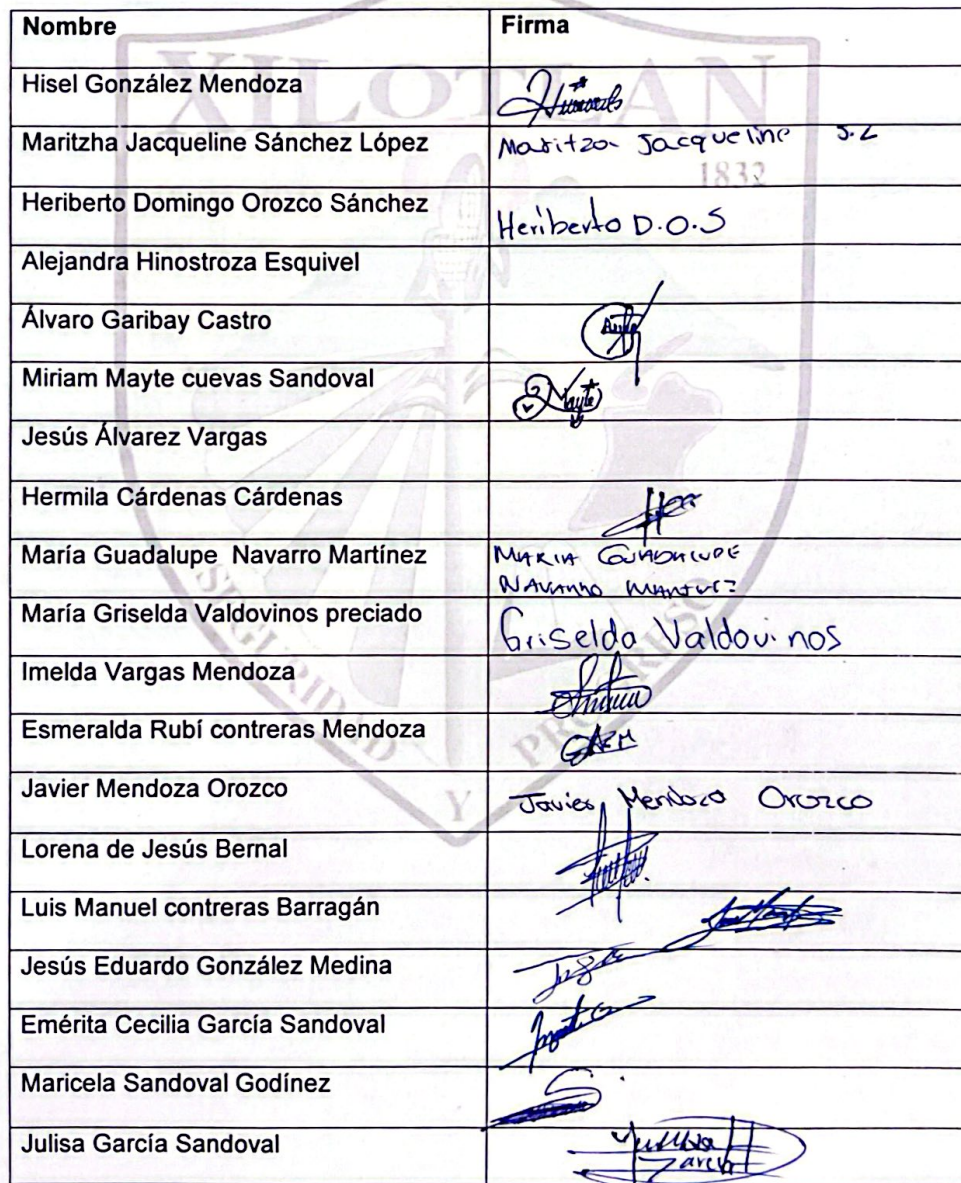 Nombre Firma
XILOTLAN
Hisel González Mendoza
Maritzha Jacqueline Sánchez López Maritza Jacqueline S.L
1832
Heriberto Domingo Orozco Sánchez Heriberto D.O.S
Alejandra Hinostroza Esquivel
Álvaro Garibay Castro
Miriam Mayte cuevas Sandoval Mayte
Jesús Álvarez Vargas
Hermila Cárdenas Cárdenas
María Guadalupe Navarro Martínez MARIA GUADALUPE
NAVARRO
María Griselda Valdovinos preciado Griselda Valdovinos
Imelda Vargas Mendoza
Esmeralda Rubí contreras Mendoza
SEGURIDAD Y PROGRESO
Javier Mendoza Orozco Javier Mendoza Orozco
Lorena de Jesús Bernal
Luis Manuel contreras Barragán
Jesús Eduardo González Medina
Emérita Cecilia García Sandoval
Maricela Sandoval Godínez
Julisa García Sandoval